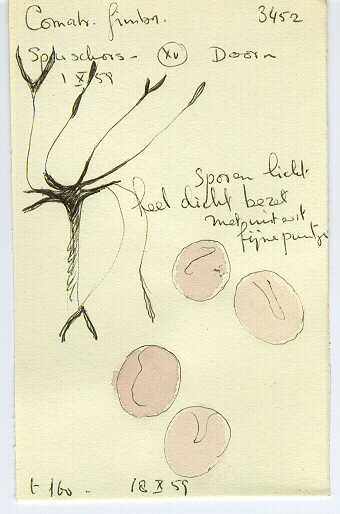 Comatr. fimbr. 3452
Sparschors - XV Doorn
1 X 59
Sporen licht
heel dicht bezet
met
fijne puntjes
t 160 - 18 X 59